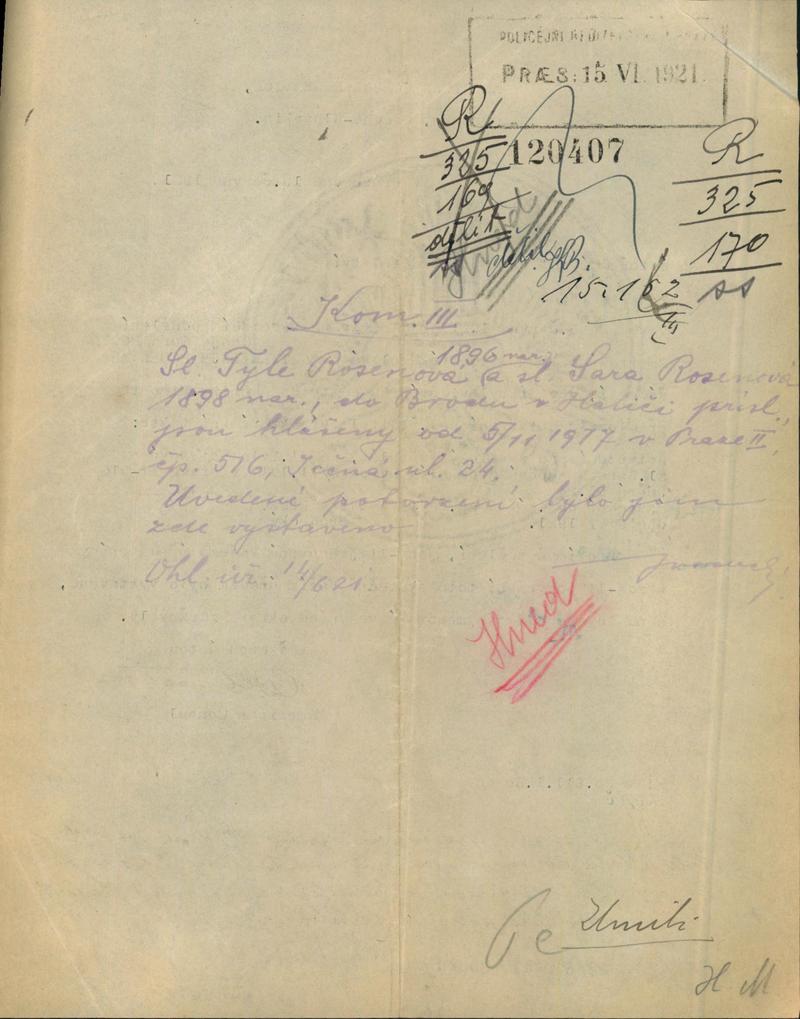 POLICEJNÍ ŘEDITELSTVÍ
PRÆS: 15. VI. 1921
120407
R
385
169
dělit
R
325
170
ss
15.
Hned
Kom. III
1896 nar.
Sl. Tyle Rosenová a sl. Sara Rosenová
1898 nar., do Brodu v Haliči přísl.,
jsou hlášeny od 5/11 1917 v Praze II,
čp. 516, Ječná ul. 24.
Uvedené potvrzení bylo jim
zde vystaveno
Ohl. úř. 14/6 21.
Hned
H M